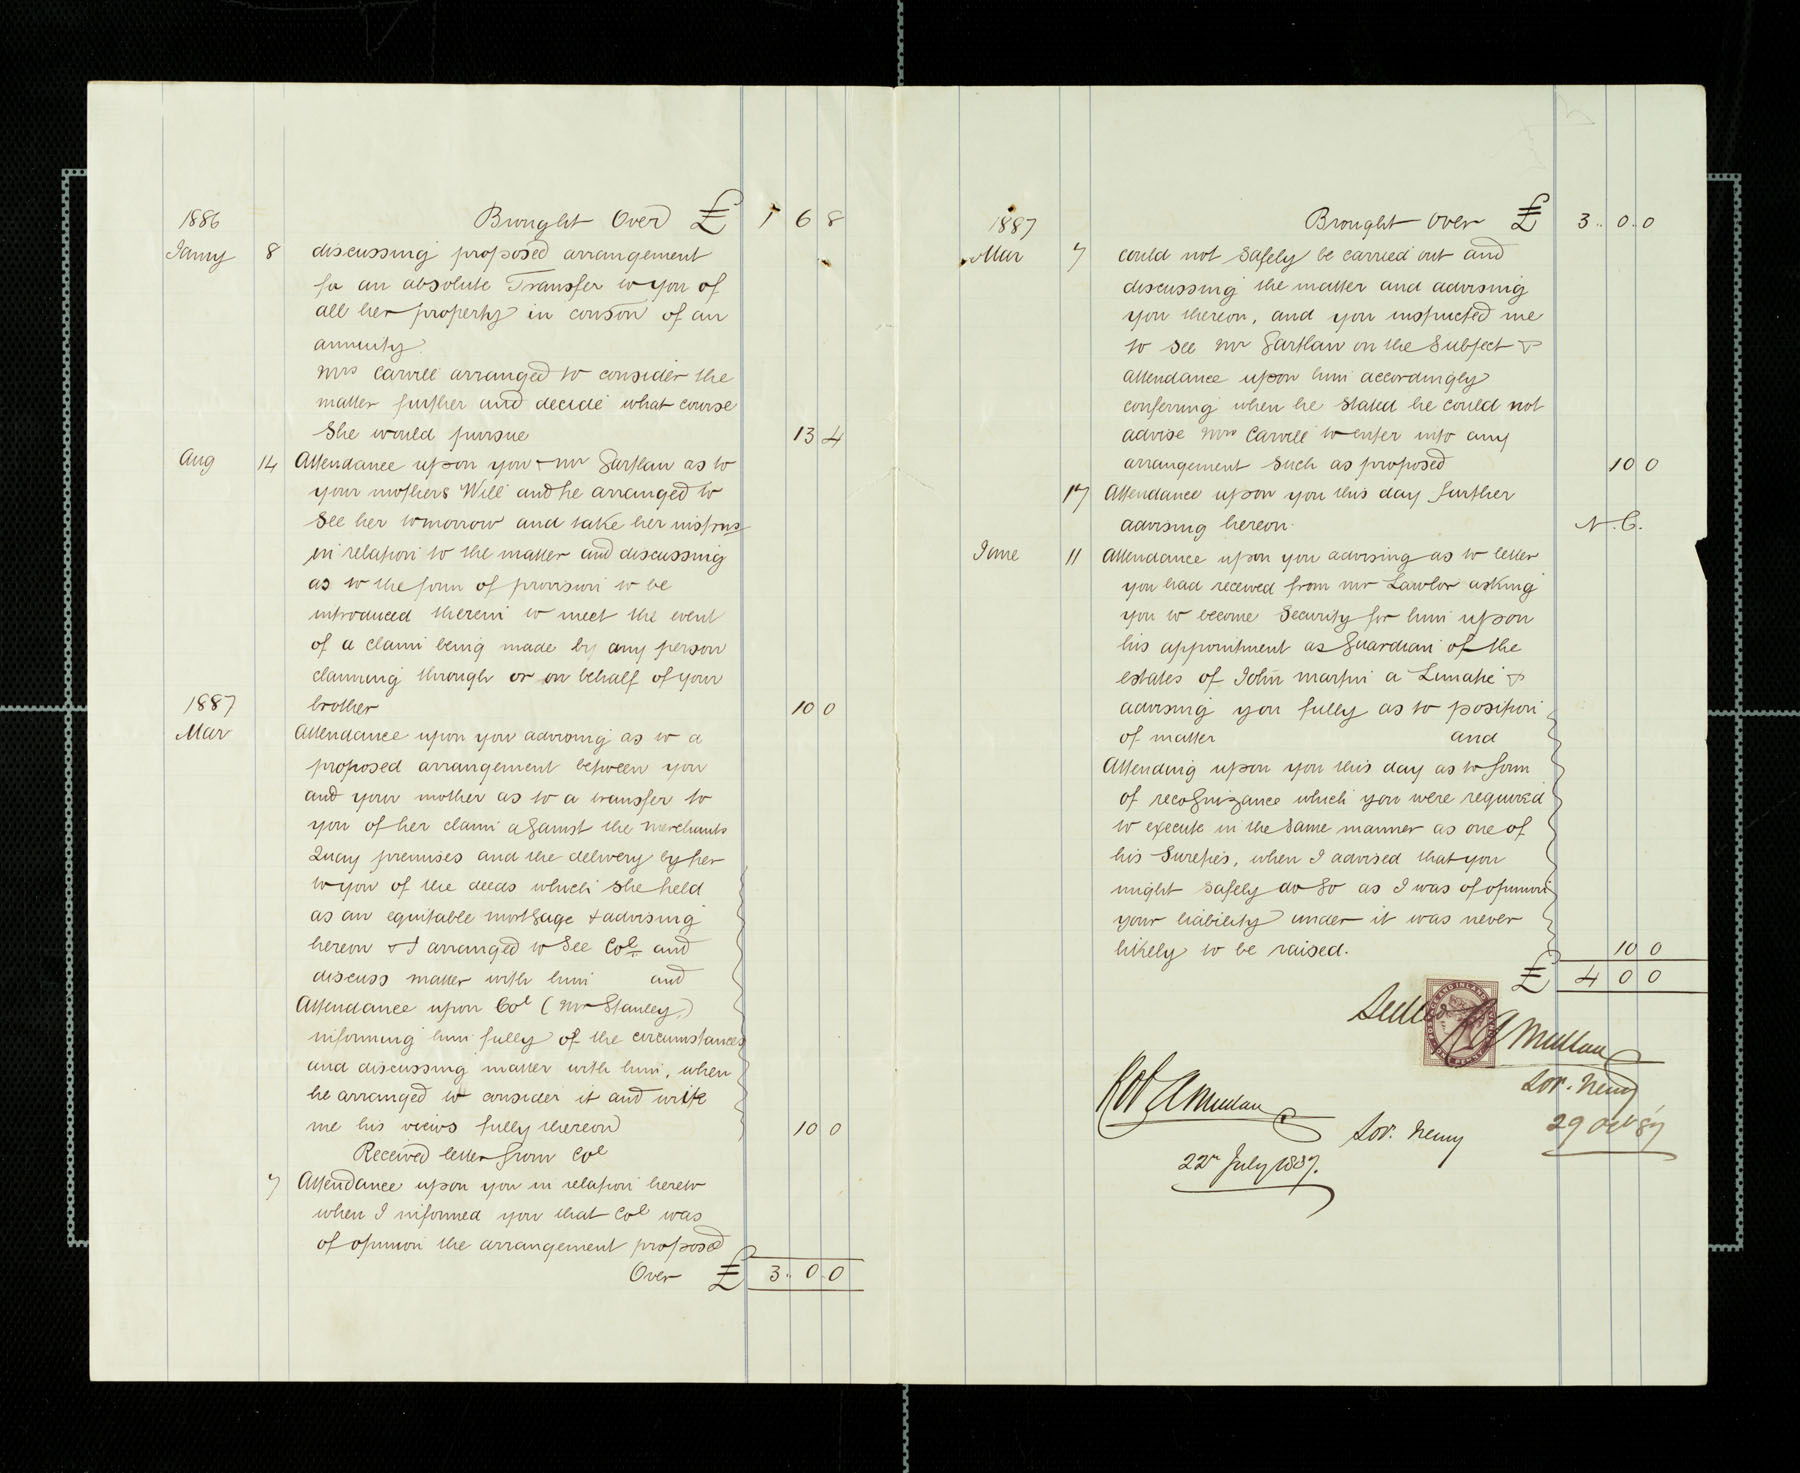 1886 Brought Over £ 1 6 8
Jany 8 discussing proposed arrangement
for an absolute Transfer to you of
all her property in conson of an
annuity.
Mrs Carvill arranged to consider the
matter further and decide what course
She would pursue 13 4
Aug 14 Attendance upon you & Mr Gartlan as to
your mothers Will and he arranged to
See her tomorrow and take her instrns
in relation to the matter and discussing
as to the form of provision to be
introduced therein to meet the event
of a claim being made by any person
claiming through or on behalf of your
1887 brother 10 0
Mar Attendance upon you advising as to a
proposed arrangement between you
and your mother as to a transfer to
you of her claim against the Merchants
Quay premises and the delivery by her
to you of the deeds which she held
as an equitable mortgage & advising
hereon & I arranged to See Col and
discuss matter with him and
Attendance upon Col (Mr Stanley)
informing him fully of the circumstances
and discussing matter with him, when
he arranged to consider it and write
me his views fully thereon 10 0
Received letter from Col
7 Attendance upon you in relation hereto
when I informed you that Col was
of opinion the arrangement proposed
Over £ 3 . 0 . 0
1887 Brought Over £ 3 .. 0 . 0
Mar 7 could not safely be carried out and
discussing the matter and advising
you thereon, and you instructed me
to see Mr Gartlan on the Subject &
attendance upon him accordingly
conferring when he stated he could not
advise Mrs Carvill to enter into any
arrangement such as proposed 10 0
17 Attendance upon you this day further
advising hereon. N.C.
June 11 Attendance upon you advising as to letter
you had received from Mr Lawlor asking
you to become Security for him upon
his appointment as Guardian of the
estates of John Martin a Lunatic &
advising you fully as to position
of matter and
Attending upon you this day as to form
of recognizance which you were required
to execute in the same manner as one of
his Sureties, when I advised that you
might safely do so as I was of opinion
your liability under it was never
likely to be raised. 10 0
£ 4 0 0
R A Mullan
Sor. Newry
29 Oct 87
Robt A Mullan
Sor. Newry
22nd July 1887.